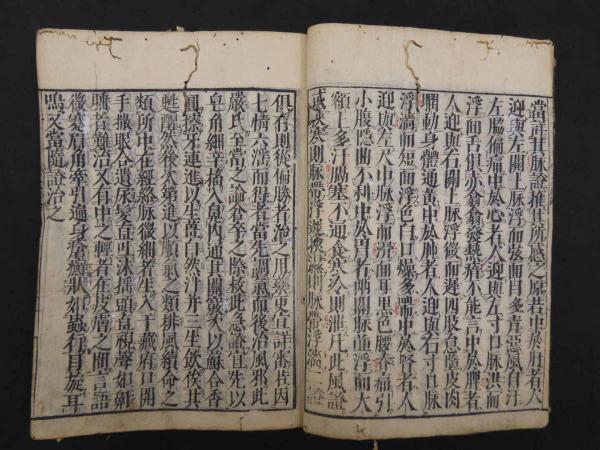 當詳其脉證推其所感之原若中於肝者人
迎與左關上脉浮而弦面目多青惡風自汗
左脇偏痛中於心者人迎與左寸口脉洪而
浮面舌俱赤翕翕發熱瘖不能言中於脾者
人迎與右關上脉浮微而遲四肢怠墮皮肉
膶動身體通黃中於肺者人迎與右寸口脉
浮濇而短面浮色白口燥多喘中於腎者人
迎與左尺中脉浮而滑面耳黑色腰脊痛引
小腹隱曲不利中於胃者兩關脉並浮而大
額上多汗膈塞不通食寒冷則泄凡此風證
或挾寒則脉帶浮遲挾濕則脉帶浮濇二證
俱有則從偏勝者治之用藥更宜詳審若因
七情六淫而得者當先調氣而後治風邪此
嚴氏至當之論倉卒之際救此急證宜先以
皂角細辛搐入鼻內通其關竅次以蘇合香
圓擦牙連進以生薑自然汁并三生飲俟其
甦醒然後次第進以順氣之類排風續命之
類所中在經絡脉微細者生入于藏府口開
手撒眼合遺尿髮直吐沫搖頭直視聲如鼾
睡者難治又有中之輕者在皮膚之間言語
微蹇眉角牽引遍身瘡癬狀如蟲行目旋耳
鳴又當隨證治之